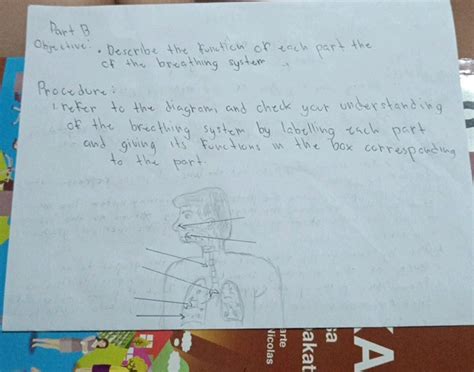 Part B
Objective: • Describe the function of each part the
of the breathing system.
Procedure:
1. refer to the diagram and check your understanding
of the breathing system by labelling each part
and giving its functions in the box corresponding
to the part.
KA
sa
pakat
arte
Nicolas